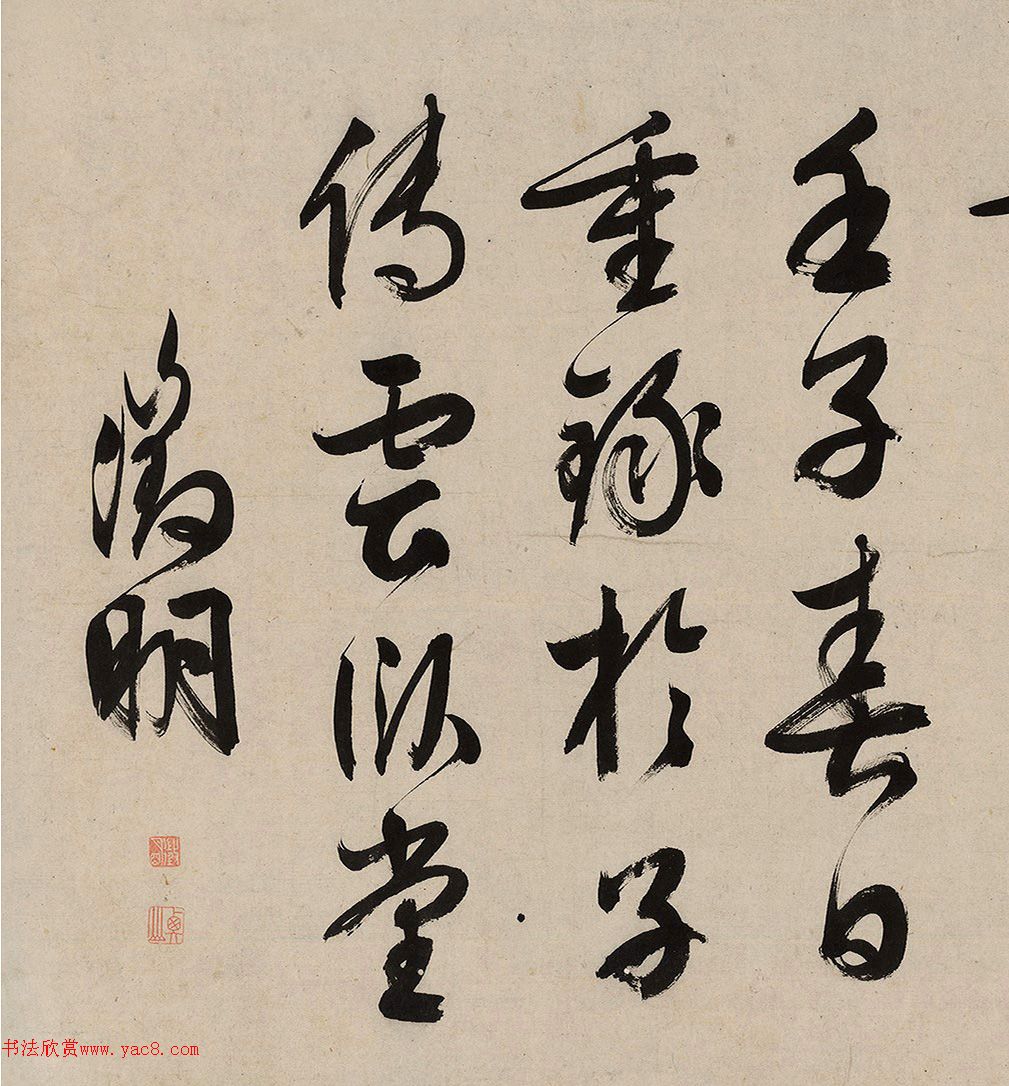 壬子春日
重錄於子
傳雲臥堂
徵明
书法欣赏www.yac8.com